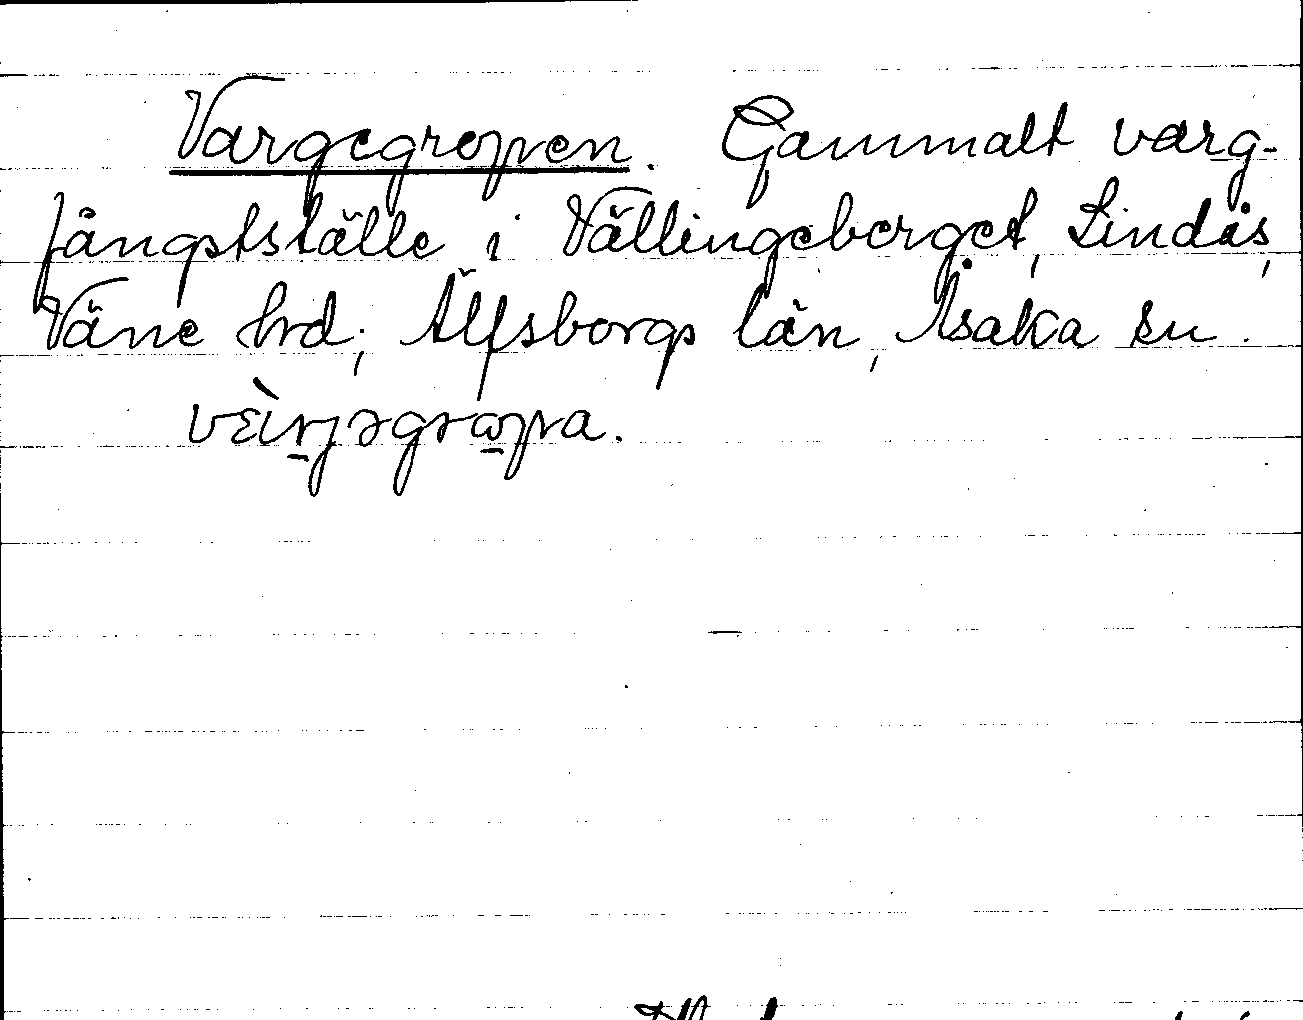 Vargegropen. Gammalt varg-
fångstställe i Vällingeberget, Lindås,
Väne hrd, Älfsborgs län, Åsaka sn.